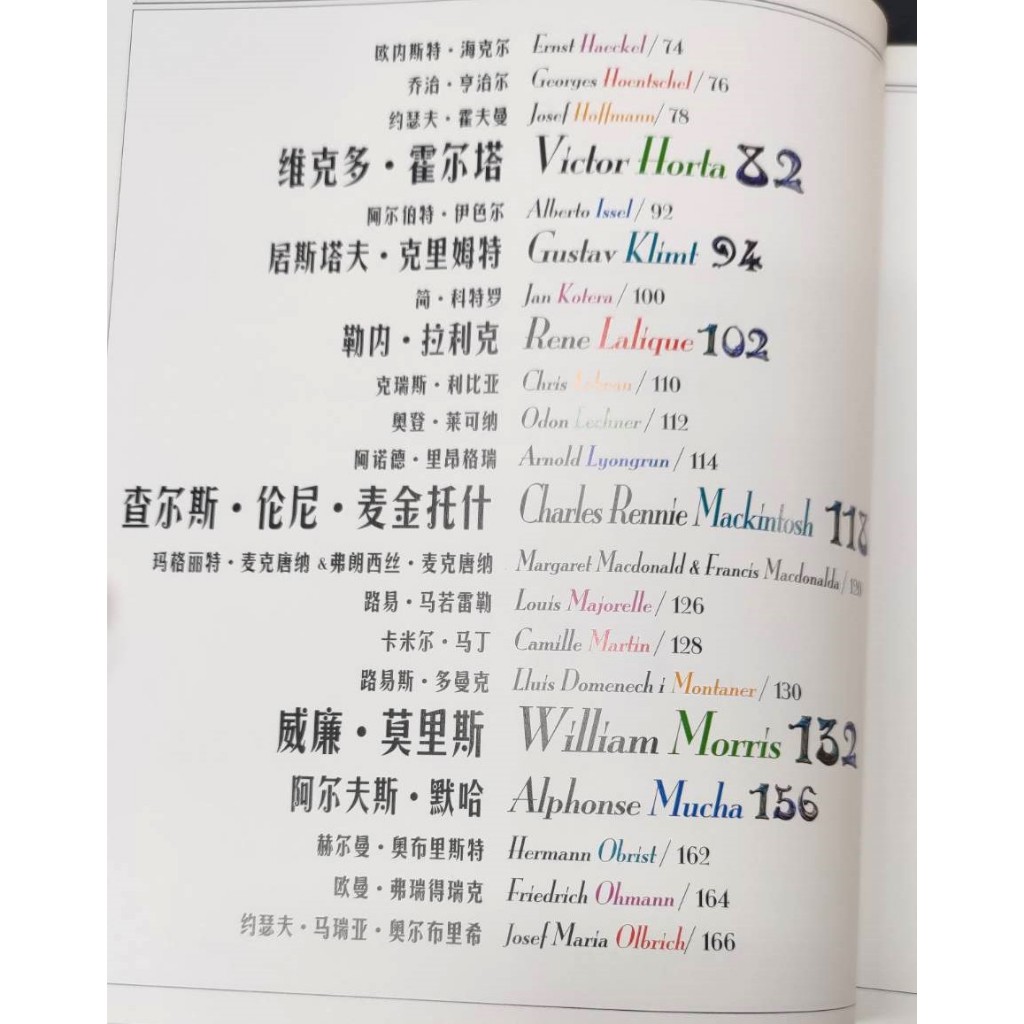 欧内斯特·海克尔 Ernst Haeckel / 74
乔治·亨治尔 Georges Hoentschel / 76
约瑟夫·霍夫曼 Josef Hoffmann / 78
维克多·霍尔塔 Victor Horta 82
阿尔伯特·伊色尔 Alberto Issel / 92
居斯塔夫·克里姆特 Gustav Klimt 94
简·科特罗 Jan Kotera / 100
勒内·拉利克 Rene Lalique 102
克瑞斯·利比亚 Chris / 110
奥登·莱可纳 Odon Lechner / 112
阿诺德·里昂格瑞 Arnold Lyongrun / 114
查尔斯·伦尼·麦金托什 Charles Rennie Mackintosh 118
玛格丽特·麦克唐纳 & 弗朗西丝·麦克唐纳 Margaret Macdonald & Francis Macdonalda /
路易·马若雷勒 Louis Majorelle / 126
卡米尔·马丁 Camille Martin / 128
路易斯·多曼克 Lluis Domenech i Montaner / 130
威廉·莫里斯 William Morris 132
阿尔夫斯·默哈 Alphonse Mucha 156
赫尔曼·奥布里斯特 Hermann Obrist / 162
欧曼·弗瑞得瑞克 Friedrich Ohmann / 164
约瑟夫·马瑞亚·奥尔布里希 Josef Maria Olbrich / 166